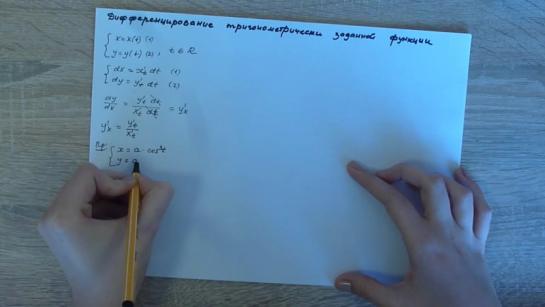 Дифференцирование тригонометрически заданной функции
{ x = x(t) (1)
{ y = y(t) (2), t ∈ R
{ dx = x't dt (1)
{ dy = y't dt (2)
dy/dx = y't dt / x't dt = y'x
y'x = y't / x't
{ x = a · cos t
{ y = a